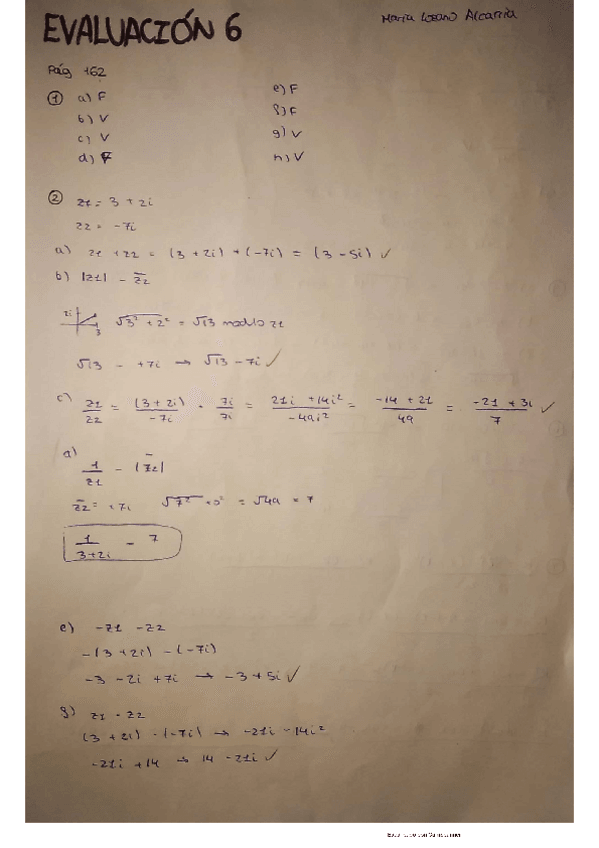 EVALUACIÓN 6
Maria Lozano Alcarria
Pág 162
① a) F
b) V
c) V
d) F
e) F
f) F
g) V
h) V
② z1 = 3 + 2i
z2 = -7i
a) z1 + z2 = (3 + 2i) + (-7i) = (3 - 5i) ✓
b) |z1| - z̄2
2i
3
√3² + 2² = √13 modulo z1
√13 - +7i → √13 - 7i ✓
c) z1/z2 = (3 + 2i)/-7i · 7i/7i = 21i + 14i²/-49i² = -14 + 21/49 = -21 + 3i/7 ✓
d)
1/z1 - |z̄2|
z̄2 = +7i √7² + 0² = √49 = 7
1/3+2i - 7
e) -z1 - z2
-(3 + 2i) - (-7i)
-3 - 2i + 7i → -3 + 5i ✓
f) z1 · z2
(3 + 2i) · (-7i) → -21i - 14i²
-21i + 14 → 14 - 21i ✓